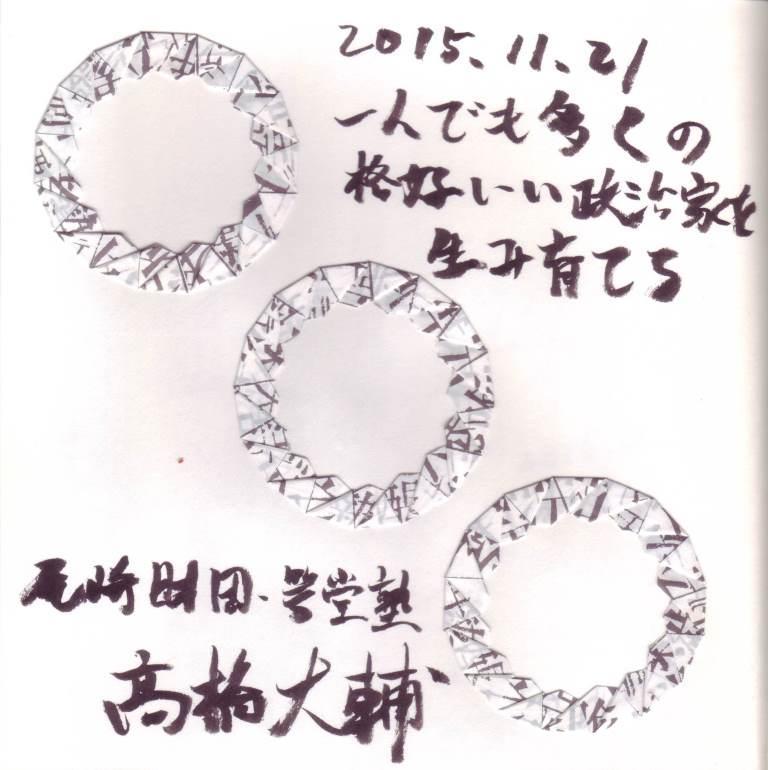 2015.11.21
一人でも多くの
格好いい政治家を
生み育てる
尾崎財団・咢堂塾
高橋大輔